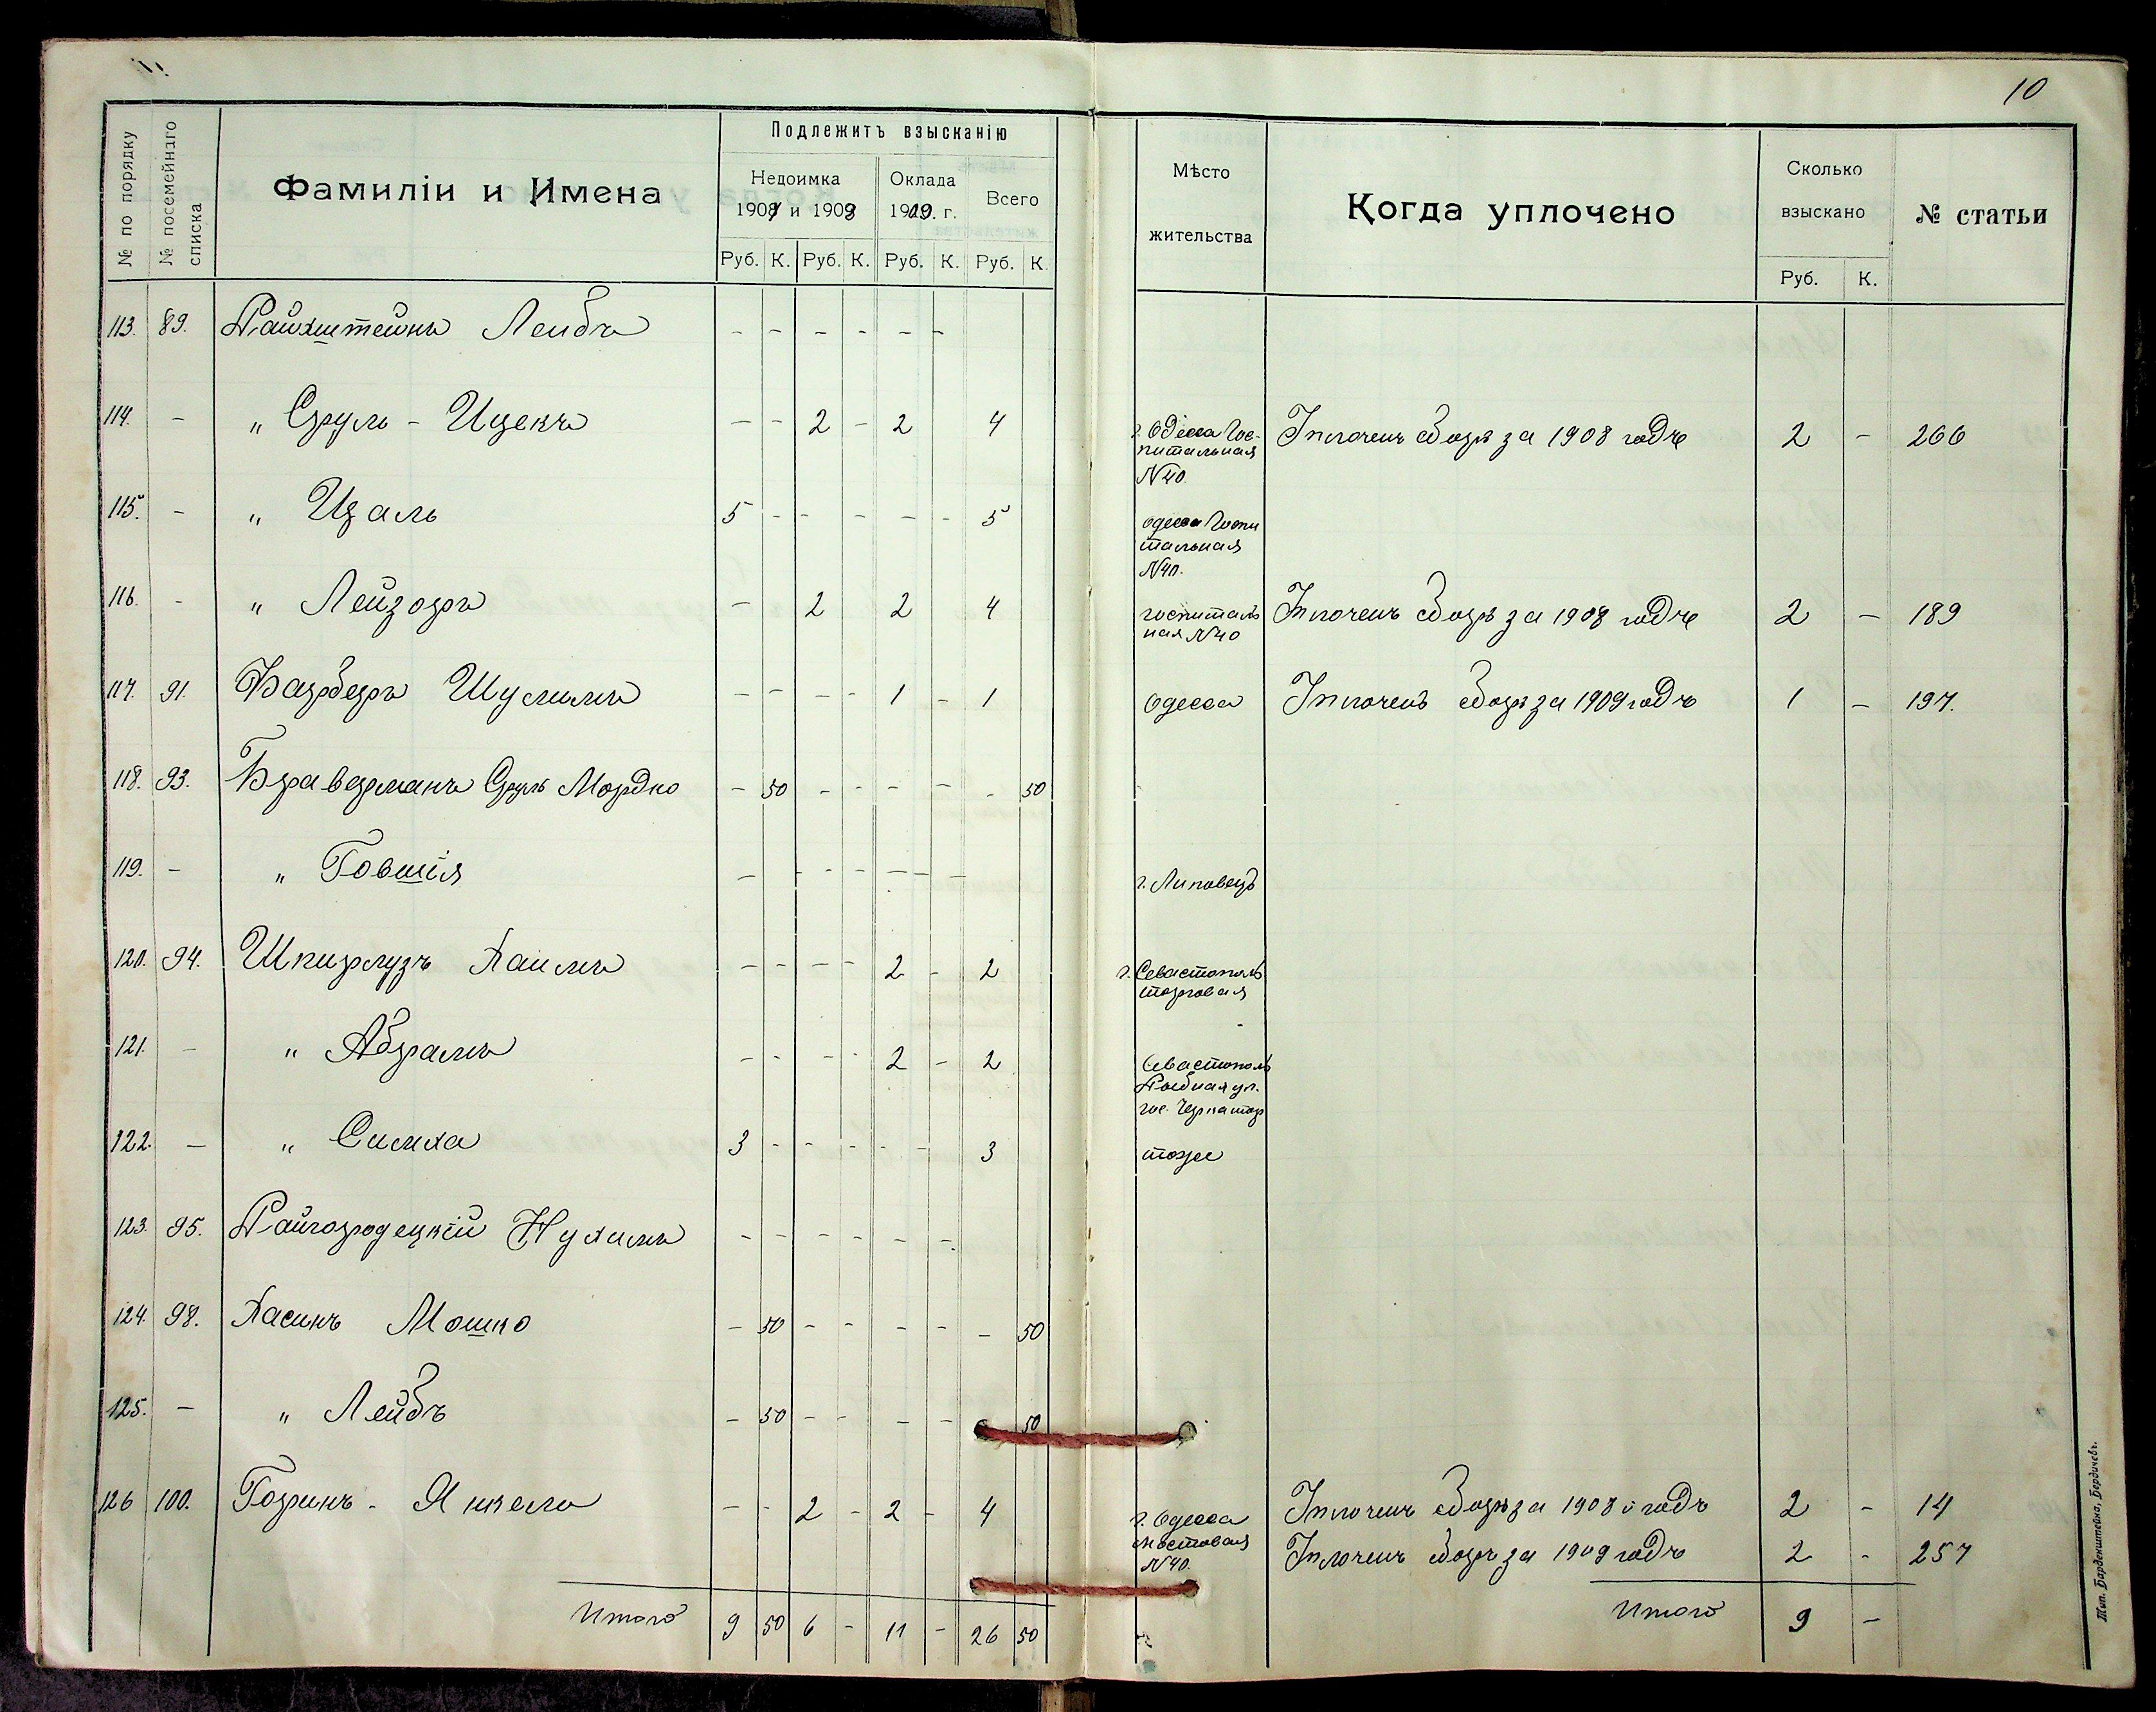 10
№ по порядку
№ посемейнаго списка
Фамиліи и Имена
Подлежитъ взысканію
Недоимка
1907 и 1908
Оклада
1909. г.
Всего
Руб. К. Руб. К. Руб. К. Руб. К.
Мѣсто
жительства
Когда уплочено
Сколько
взыскано
Руб. К.
№ статьи
113. 89. Райхштейнъ Лейбъ - - - - - -
114. - " Сруль - Ицекъ - - 2 - 2 4 г. Одесса Гос- Уплоченъ сборъ за 1908 годъ 2 - 266
питальная
N40.
115. - " Цаль 5 - - - - - 5 Одесса Госпи
тальная
N40.
116. - " Лейзоръ - 2 2 4 госпиталь Уплоченъ сборъ за 1908 годъ 2 - 189
ная N40
117. 91. Барберъ Шулимъ - - - - 1 - 1 Одесса Уплоченъ сборъ за 1909 годъ 1 - 197.
118. 93. Браверманъ Сруль Мордко - 50 - - - - - 50
119. - " Говшія - - - - - - - г. Липовецъ
120. 94. Хаимъ - - - - 2 - 2 г. Севастополь
торговая
121. - " Абрамъ - - - - 2 - 2 Севастополь
Рыбная ул.
гос.
122. - " Симха 3 - - - - - 3 тоже
123. 95. Райгородецкій Нухимъ - - - - - -
124. 98. Хасинъ Мошко - 50 - - - - - 50
125. - " Лейбъ - 50 - - - - 50
126 100. Горинъ - Янкель - - 2 - 2 - 4 г. Одесса Уплоченъ сборъ за 1908 й годъ 2 - 14
мостовая
N40. Уплоченъ сборъ за 1909 годъ 2 - 257
Итого 9 50 6 - 11 - 26 50 Итого 9 -
Тип. Барденштейна, Бердичевъ.